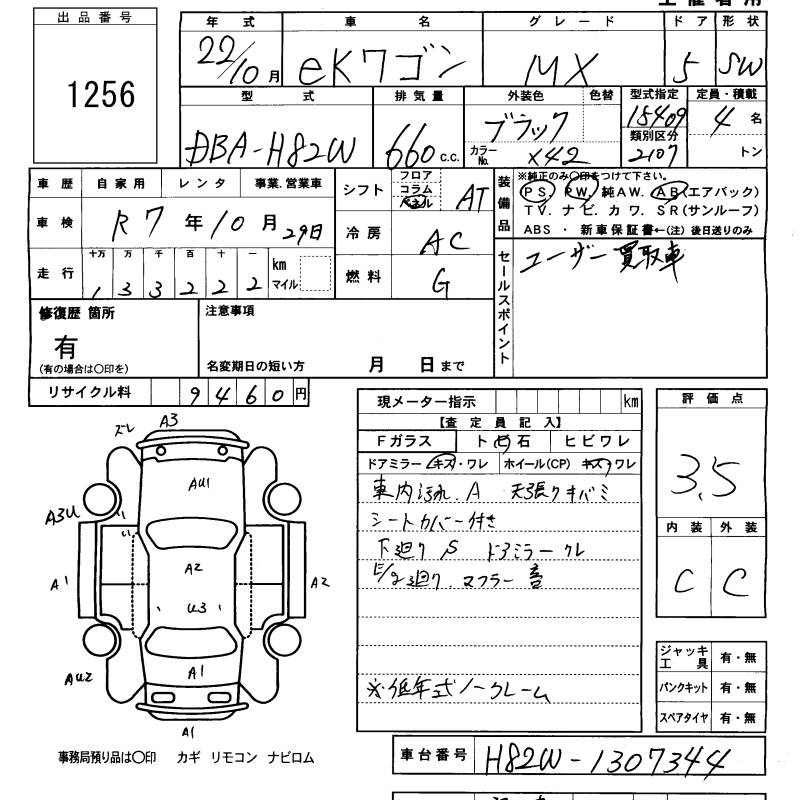 出品番号
1256
年式 車名 グレード ドア 形状
22/10月 eKワゴン MX 5 SW
型式 排気量 外装色 色替 型式指定 定員・積載
DBA-H82W 660 c.c. ブラック 15409 4名
カラーNo. X42 類別区分 2107 トン
車歴 自家用 レンタ 事業.営業車
車検 R7年10月29日
走行 十万 万 千 百 十 一 km マイル
1 3 3 2 2 2
シフト フロア コラム パネル AT
冷房 AC
燃料 G
装備品 ※純正のみ〇印をつけて下さい。
PS PW 純AW. AB(エアバック)
TV. ナビ. カワ. SR(サンルーフ)
ABS ・ 新車保証書←(注) 後日送りのみ
セールスポイント
ユーザー買取車
修復歴 箇所
有
(有の場合は〇印を)
注意事項
名変期日の短い方 月 日まで
リサイクル料 9460円
現メーター指示 km
【査定員記入】
Fガラス ト石 ヒビワレ
ドアミラー キズ・ワレ ホイール(CP) キズ・ワレ
車内汚れ.A 天張りキバミ
シートカバー付き
下廻り S ドアミラー クレ
E/g廻り.マフラー音
※低年式ノークレーム
評価点
3.5
内装 外装
C C
ジャッキ工具 有・無
パンクキット 有・無
スペアタイヤ 有・無
ズレ A3
AU1
A3U
A2
A1 A2
U3
AU2 A1
A1
事務局預り品は〇印 カギ リモコン ナビロム
車台番号 H82W-1307344